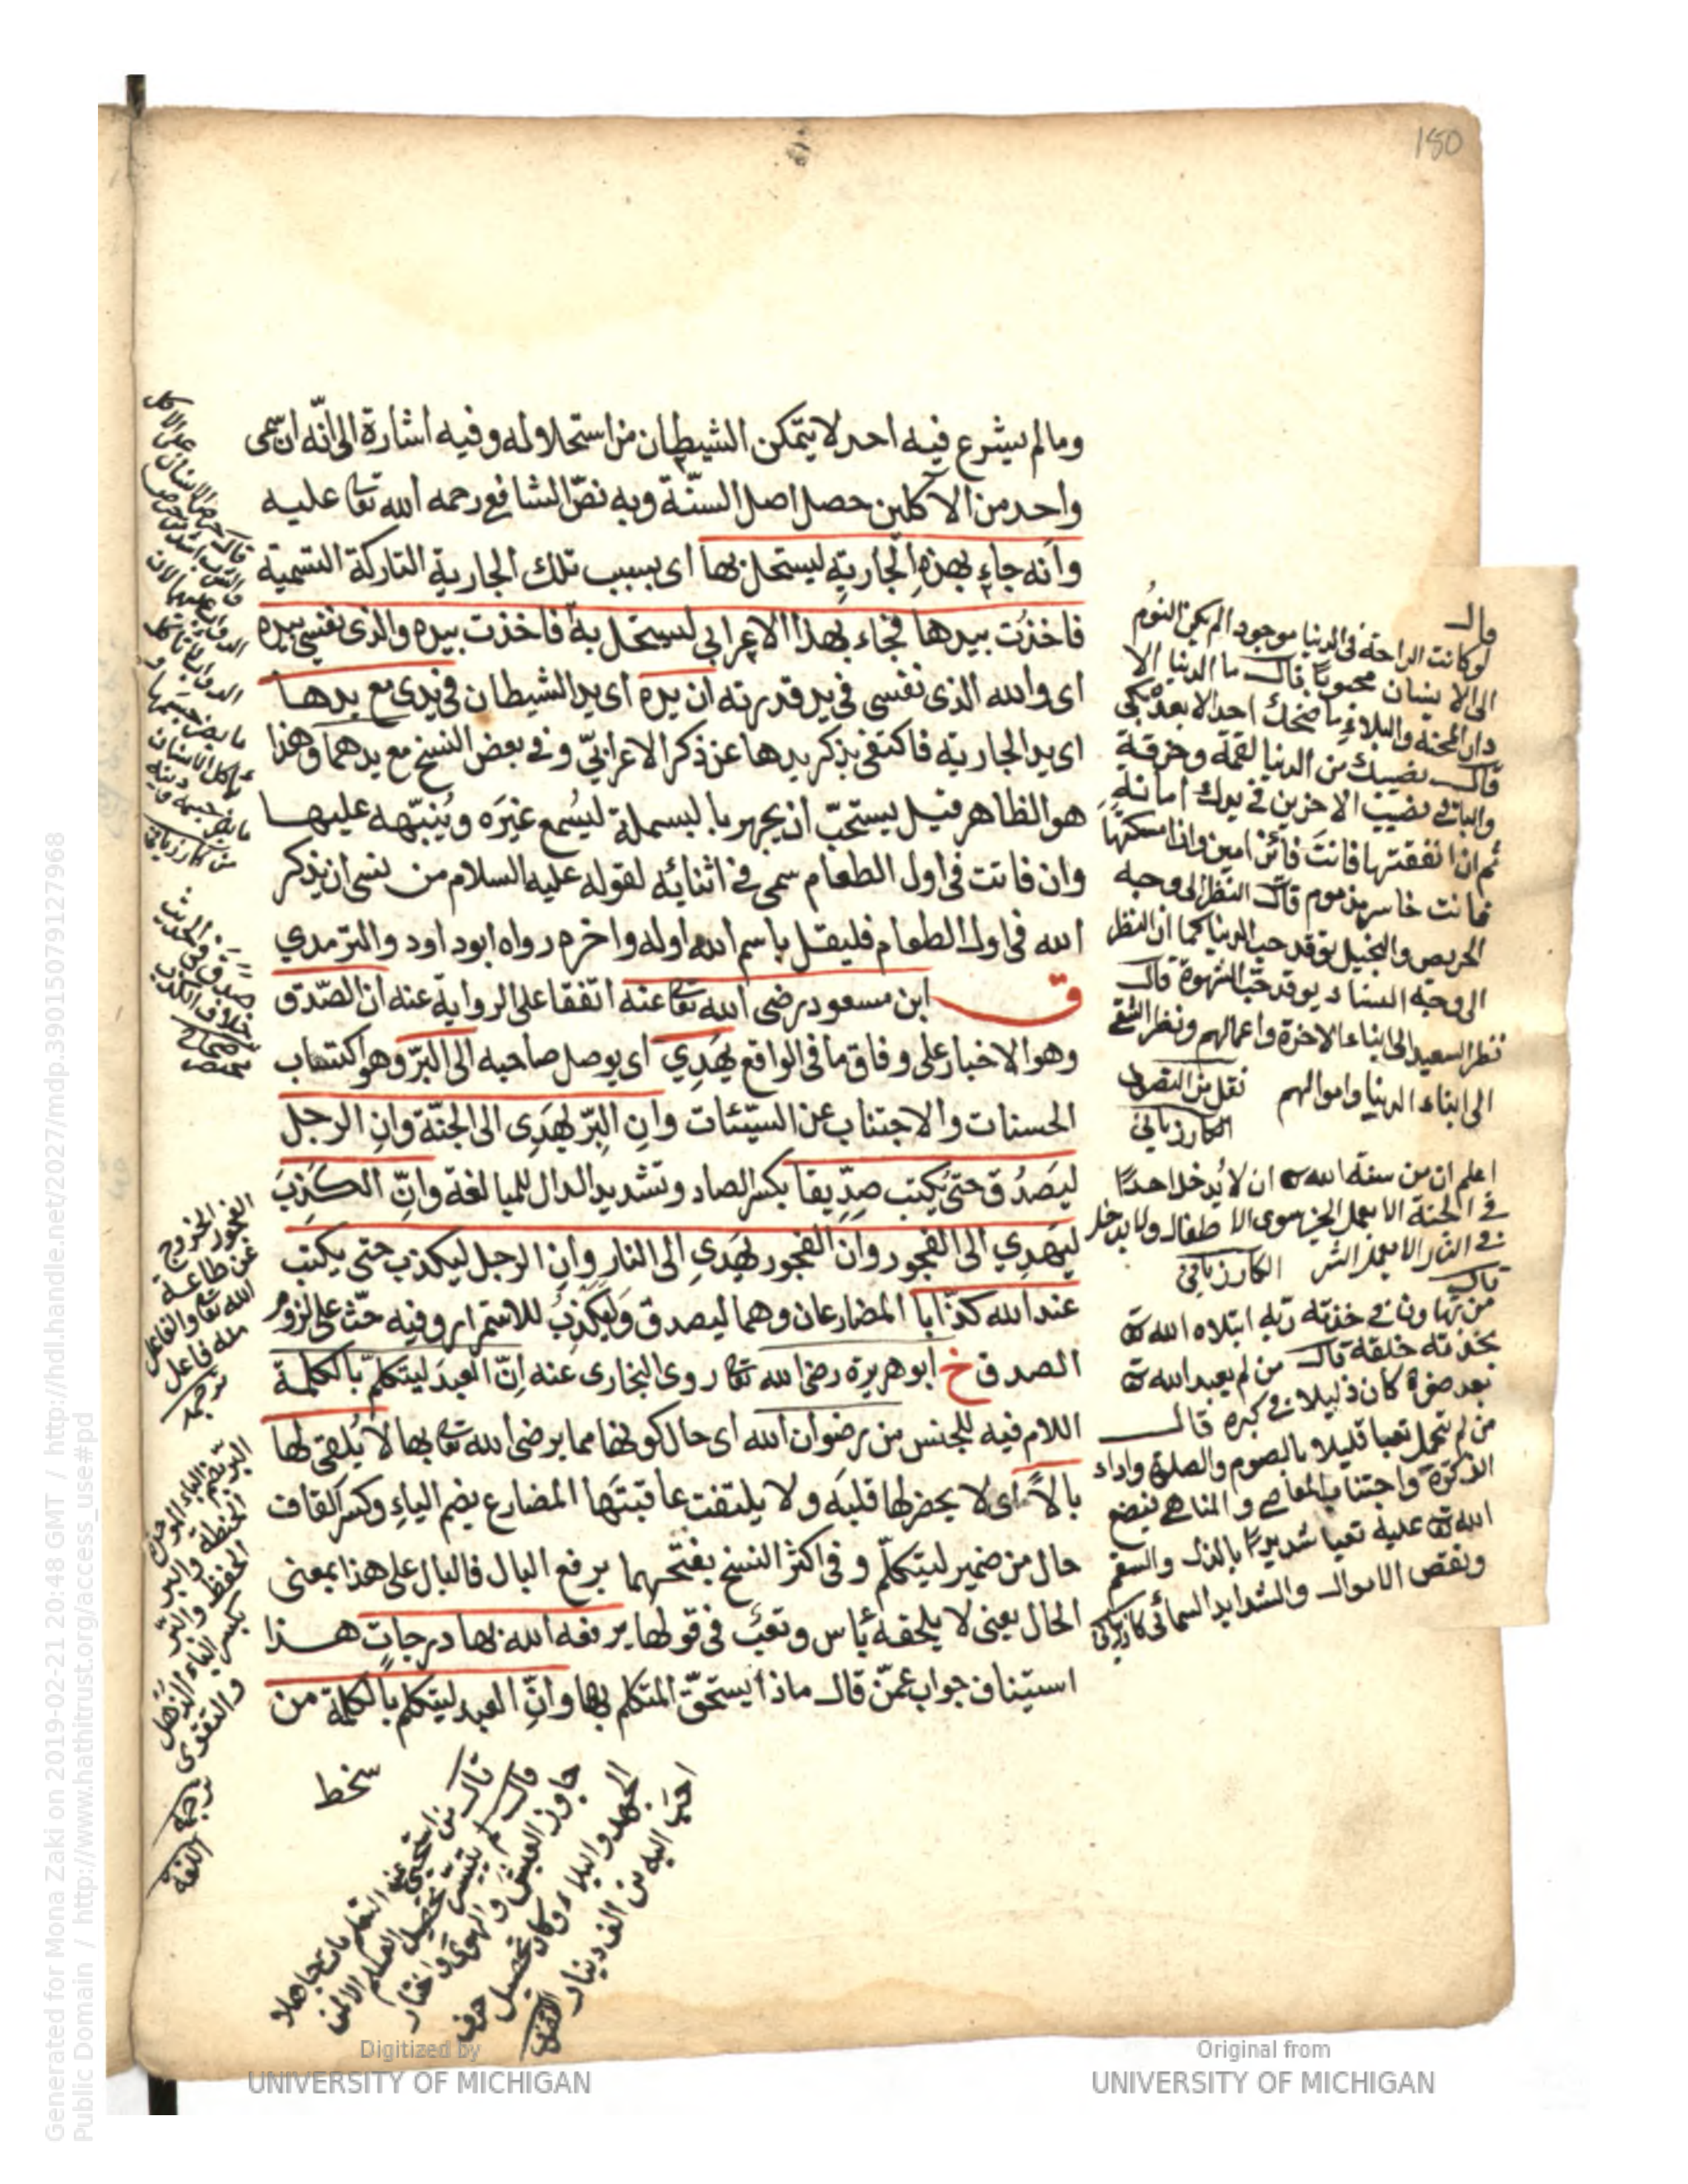 180
وما لم يشرع فيه احد لا يتمكن الشيطان من استحلاله وفيه اشارة الى انّه ان سمى
واحد من الآكلين حصل اصل السنّة وبه نصّ الشافع رحمه الله تعا عليه
وانه جاء بهذه الجارية ليستحل بها اى بسبب تلك الجارية التاركة التسمية
فاخذت بيدها فجاء بهذا الاعرابي ليستحل به فاخذت بيده والذى نفسي بيده
اى والله الذى نفسى في يد قدرته ان يده اى يد الشيطان في يدى مع يدها
اى يد الجارية فاكتفى بذكر يدها عن ذكر الاعرابيّ وفى بعض النسخ مع يدهما وهذا
هو الظاهر قيل يستحبّ ان يجهر بالبسملة ليُسمع غيَره ويُنبّهه عليها
وان فاتت فى اول الطعام سمى فى اثنائه لقوله عليه السلام من نسى ان يذكر
الله فى اول الطعام فليقل باسم الله اوله واخره رواه ابو داود والترمدي
ق ابن مسعود رضى الله تعا عنه اتفقا على الرواية عنه ان الصّدق
وهو الاخبار على وفاق ما فى الواقع يهَدِي اى يوصل صاحبه الى البرّ وهو اكتساب
الحسنات والاجتناب عن السيّئات وانِ البِرّ يهَدِى الى الجنّة وانِ الرجل
ليَصدُق حتىّ يُكتب صِدِّيقا بكسر الصاد وتشديد الدال للمبالغة وانّ الكَذِبَ
ليَهدِي الى الفجور وان الفجور يهَدِي الى النار وانِ الرجل ليكذب حتى يكتب
عند الله كذّابا المضارعان وهما ليصدق وَليكذبُ للاستمرار وفيه حثّ على لزوم
الصدق خ ابو هريرة رضى الله تعا روى البخارى عنه اِنّ العبدَ ليتكلمّ بالكلمة
اللام فيه للجنس من رضوان الله اى حال كونها مما يرضى الله تعا بها لا يُلقى لها
بالاً اى لا يحضر لها قلبَه ولا يلتفت عاقبتَها المضارع بضم الياءِ وكسر القاف
حال من ضمير ليتكلّم وفى اكثر النسخ بفتحهما برفع البال فالبال على هذا بمعنى
الحال يعنى لا يلحقه بأس وتعَب فى قولها يرفعه الله بها درجاتٍ هذا
استيناف جواب عمّن قال ماذا يستحقّ المتكلم بها وانِّ العبد ليتكلم بالكلمة من
سخط
قال
لو كانت الراحة فى الدنيا موجود الم يكن النومُ
الى الانسان محبوبًا قال ما الدنيا الا
دار المحنة والبلاءِ ما ضحك احد الا بعده بكى
قال نصيبك من الدنيا لقمة وخرقة
والباقى نصيب الاخرين فى يدك امانة
ثم ان انفقتها فانتَ فائز امين وان امسكتهاَ
فانت خاسر مذموم قال النظر الى وجه
الحريص والبخيل يوقد حب الدنيا كما ان النظر
الى وجه النساء يوقد حبّ الشهوة قال
نظر السعيد الى ابناء الاخرة واعمالهم ونظر الشقى
الى ابناء الدنيا واموالهم نقل من
الكارزياتي
اعلم ان من سنة الله ان لا يُدخل احدًا
فى الجنة الا بعمل الخير سوى الاطفال ولا يدخل
فى النار الا بعمل الشر الكارزياتي
قال
من تهاون فى خدمة ربه ابتلاه الله
بخدمة خلقه قال من لم يعبد الله
بعد صغره كان ذليلا فى كبره قال
من لم يتحمل تعبا قليلا بالصوم والصلوة واداء
الزكوة واجتناب المعاصى والمناهى يضع
الله عليه تعبا شديدًا بالذل والسقم
ونقص الاموال والشدايد السمائى كارزياتي
صدق فى الحديث
خلاف الكذب
الفجور الخروج
عن طاعة
الله تعا والفاعل
منه فاعل
ترجمه
البرّ بضم الباء
الحنطة والبر
بكسر الباء
والتقوى
ترجمة
اللغة
قال
من استحيى عن التعلم مات جاهلا
قال لم يتيسر تحصيل العلم الا لمن
جاوز العيش والهوى واختار
الجهد والبلاء وكان تحصيل حرف
احبّ اليه من الف دينار
Generated for Mona Zaki on 2019-02-21 20:48 GMT / http://hdl.handle.net/2027/mdp.39015079127968
Public Domain / http://www.hathitrust.org/access_use#pd
Digitized by
UNIVERSITY OF MICHIGAN
Original from
UNIVERSITY OF MICHIGAN